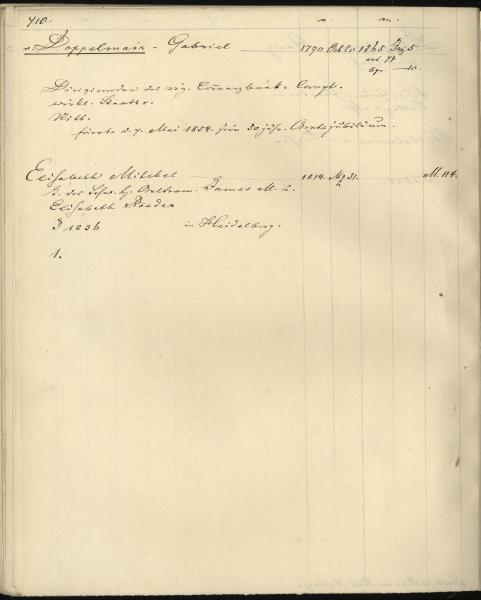 710. n. m.
v. Doppelmair - Gabriel 1790 Oct 25 1865 Juz 5
aet. 74
bgr. — 10.
Dirigirender des rig. Comerzbank-Compt.
wirkl. Staatsr.
Ritt.
feierte d. 7. Mai 1854 sein 50 jähr. Amtsjubiläum.
Elisabeth Mitchel 1814. Mz 31. M. 114.
T. des Schwe. hz. Aeltesten James M. u.
Elisabeth
† 1836 in Heidelberg.
1.